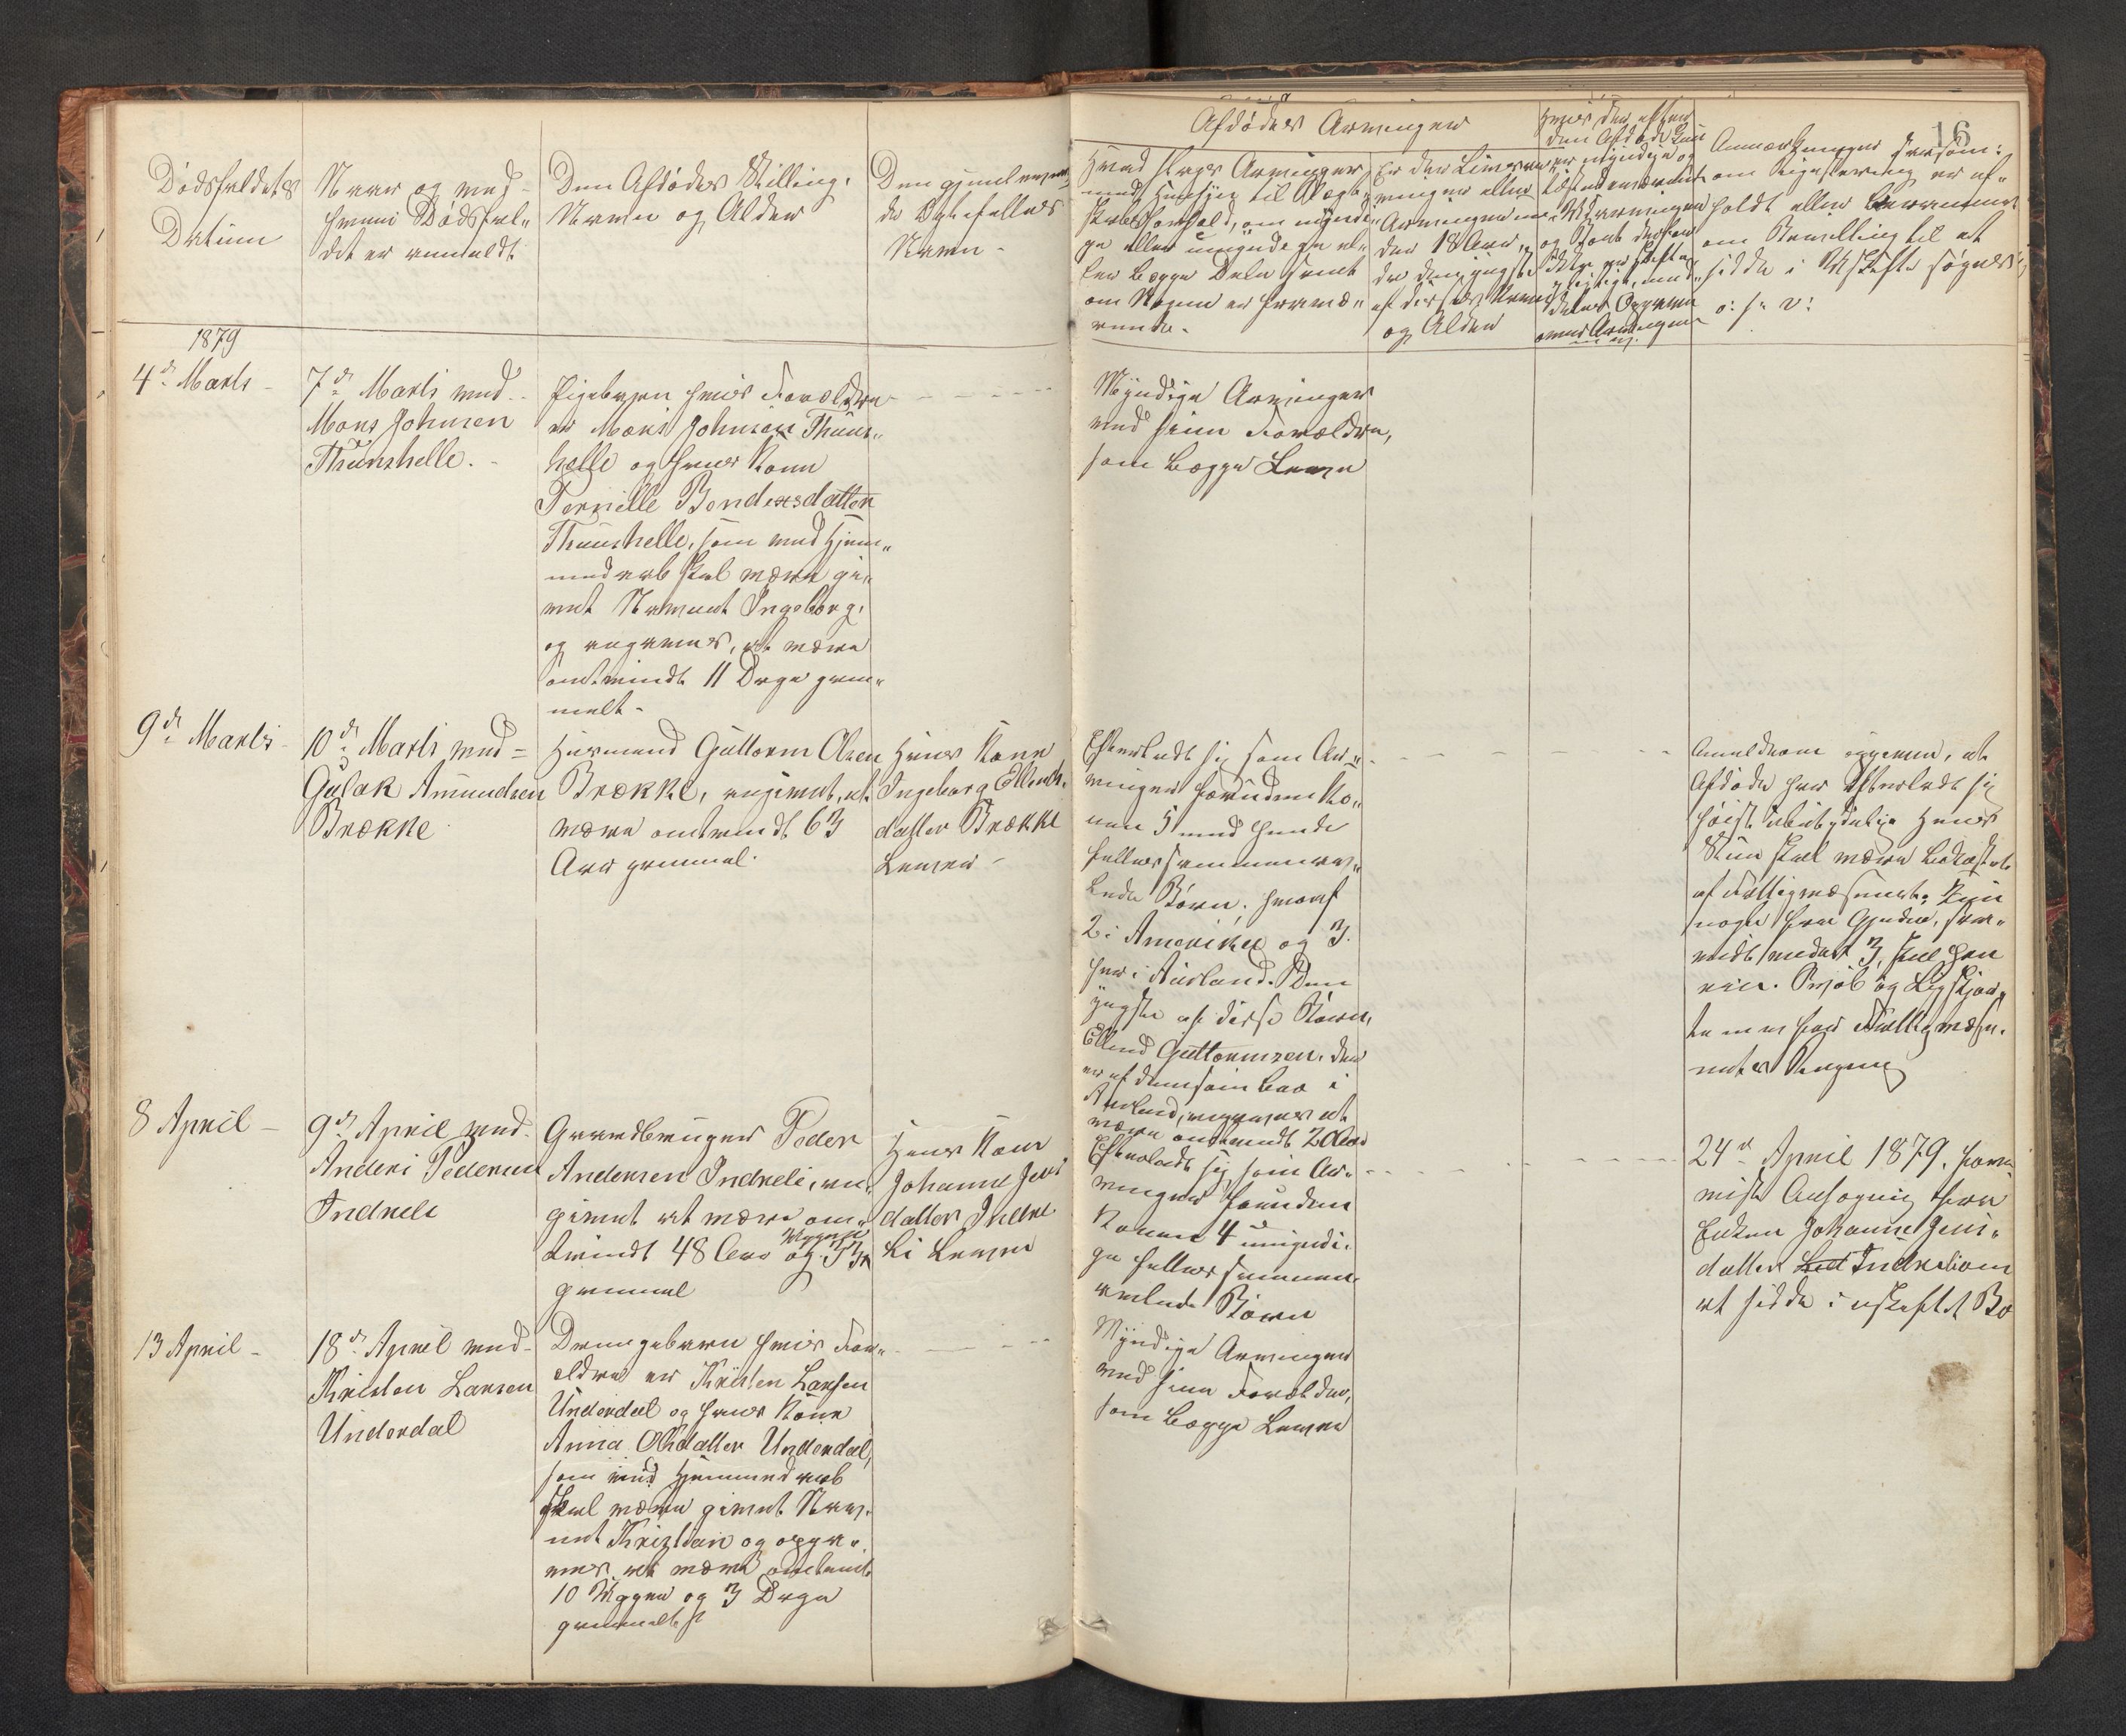 16
Dødsfaldets
Datum
Naar og med
hvem Dødsfal„
det er anmeldt
Den Afdødes Stilling,
Navn og Alder
Den gjenleven„
de Ægtefælles
Navn -
Afdødes Arvinger
Hvad slags Arvinger
med Hensyn til Slægt„
skabsforhold, om myndi„
ge eller umyndige el„
ler begge Dele samt
om Nogen er fravæ„
rende.
Er der Livsar„
vinger eller
Arvinger un„
der 18 Aar,
da den yngste
af disses Navn
og Alder
Anmærkninger saasom:
om Registrering er af„
holdt eller berammet
om Bevilling til at
sidde i Uskifte søges
o: s. v:
1879
4de Marts -
7de Marts ved
Mons Johnsen
Thunshelle. -
Pigebarn hvis Forældre
er Mons Johnsen Thuns„
helle og hans Kone
Pernille Bendixsdatter
Thunshelle, som ved Hjem„
medaab skal være gi„
vet Navnet Ingeborg,
og angaves, at være
omtrindt 11 Dage gam„
melt -
Myndige Arvinger
ved sine Forældre,
som begge Lever
9de Marts -
10de Marts ved =
Gulak Amundsen
Brække
Huusmand Guttorm Olsen
Brække, angivet, at
være omtrendt 63
Aar gammel.
Hans Kone
Ingeborg Ellends„
datter Brække
Lever -
Efterladt sig som Ar„
vinger foruden Ko„
nen 5 med hende
fælles sammenav„
lede Børn, hvoraf
2 i Amerika og 3
her i Aurland. Den
yngste af disse Børn,
Ellend Guttormsen, der
er af dem som boe i
Aurland, opgaves at
være omtrendt 20 Aar
Anmelderen opgaven, at
Afdøde har efterladt sig
høist ubetydelige Hans
skal være bekostet
af Fattigvæsenet. Kun
nogle faa Gjeder,
3, skal han
eie. og Ligskjor„
te men for Fattigvæse„
nets Regning
8 April -
9de April ved
Anders Pedersen
Indreli
Gaardbruger Peder
Andersen Indreli, an„
givet at være om„
trindt 48 Aar og 33
gammel
Hans Kone
Johanne Jens
datter Indre
li Lever
Efterladt sig som Ar„
vinger foruden
Konen 4 umyndi„
ge fælles sammen„
avlede Børn
24de April 1879.
Ansøgning fra
Enken Johanne Jens„
datter Indreli om
at sidde i uskiftet Bo
13 April -
18de April ved
Kristen Larsen
Underdal
Drengebarn hvis For„
ældre er Kristen Larsen
Underdal og hans Kone
Anna Olsdatter Underdal,
som ved Hjemmedaab
skal være givet Nav„
net Kristian og opga„
ves at være omtrent
10 Uger og 3 Dage
gammelt
Myndige Arvinger
ved sine Forældre,
som begge Lever